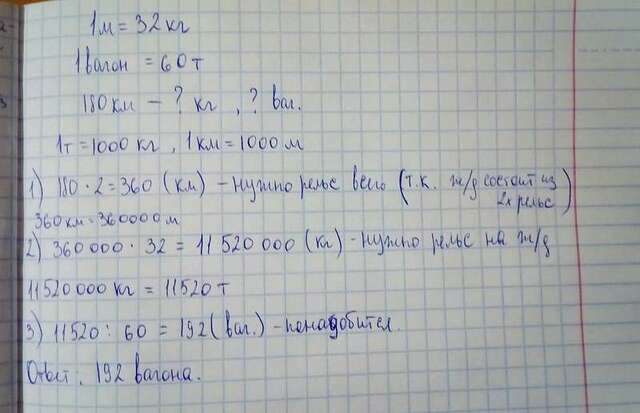 1м = 32 кг
1 вагон = 60 т
180 км - ? кг , ? ваг.
1т = 1000 кг , 1 км = 1000 м
1) 180 · 2 = 360 (км) - нужно рельс всего (т.к. ж/д состоит из 2х рельс)
360 км = 360000 м
2) 360 000 · 32 = 11 520 000 (кг) - нужно рельс на ж/д
11520 000 кг = 11520 т
3) 11520 : 60 = 192 (ваг.) - понадобится.
Ответ: 192 вагона.